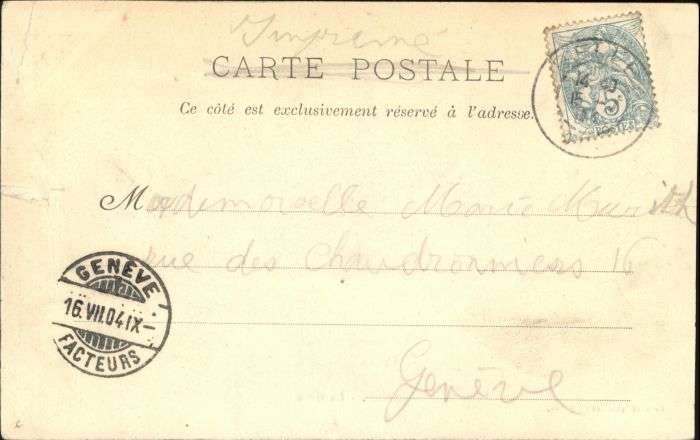 Imprimé
CARTE POSTALE
Ce côté est exclusivement réservé à l'adresse.
5
Mademoiselle Marie
rue des Chaudronniers 16
Genève
GENÈVE
16.VII.04.IX–
FACTEURS